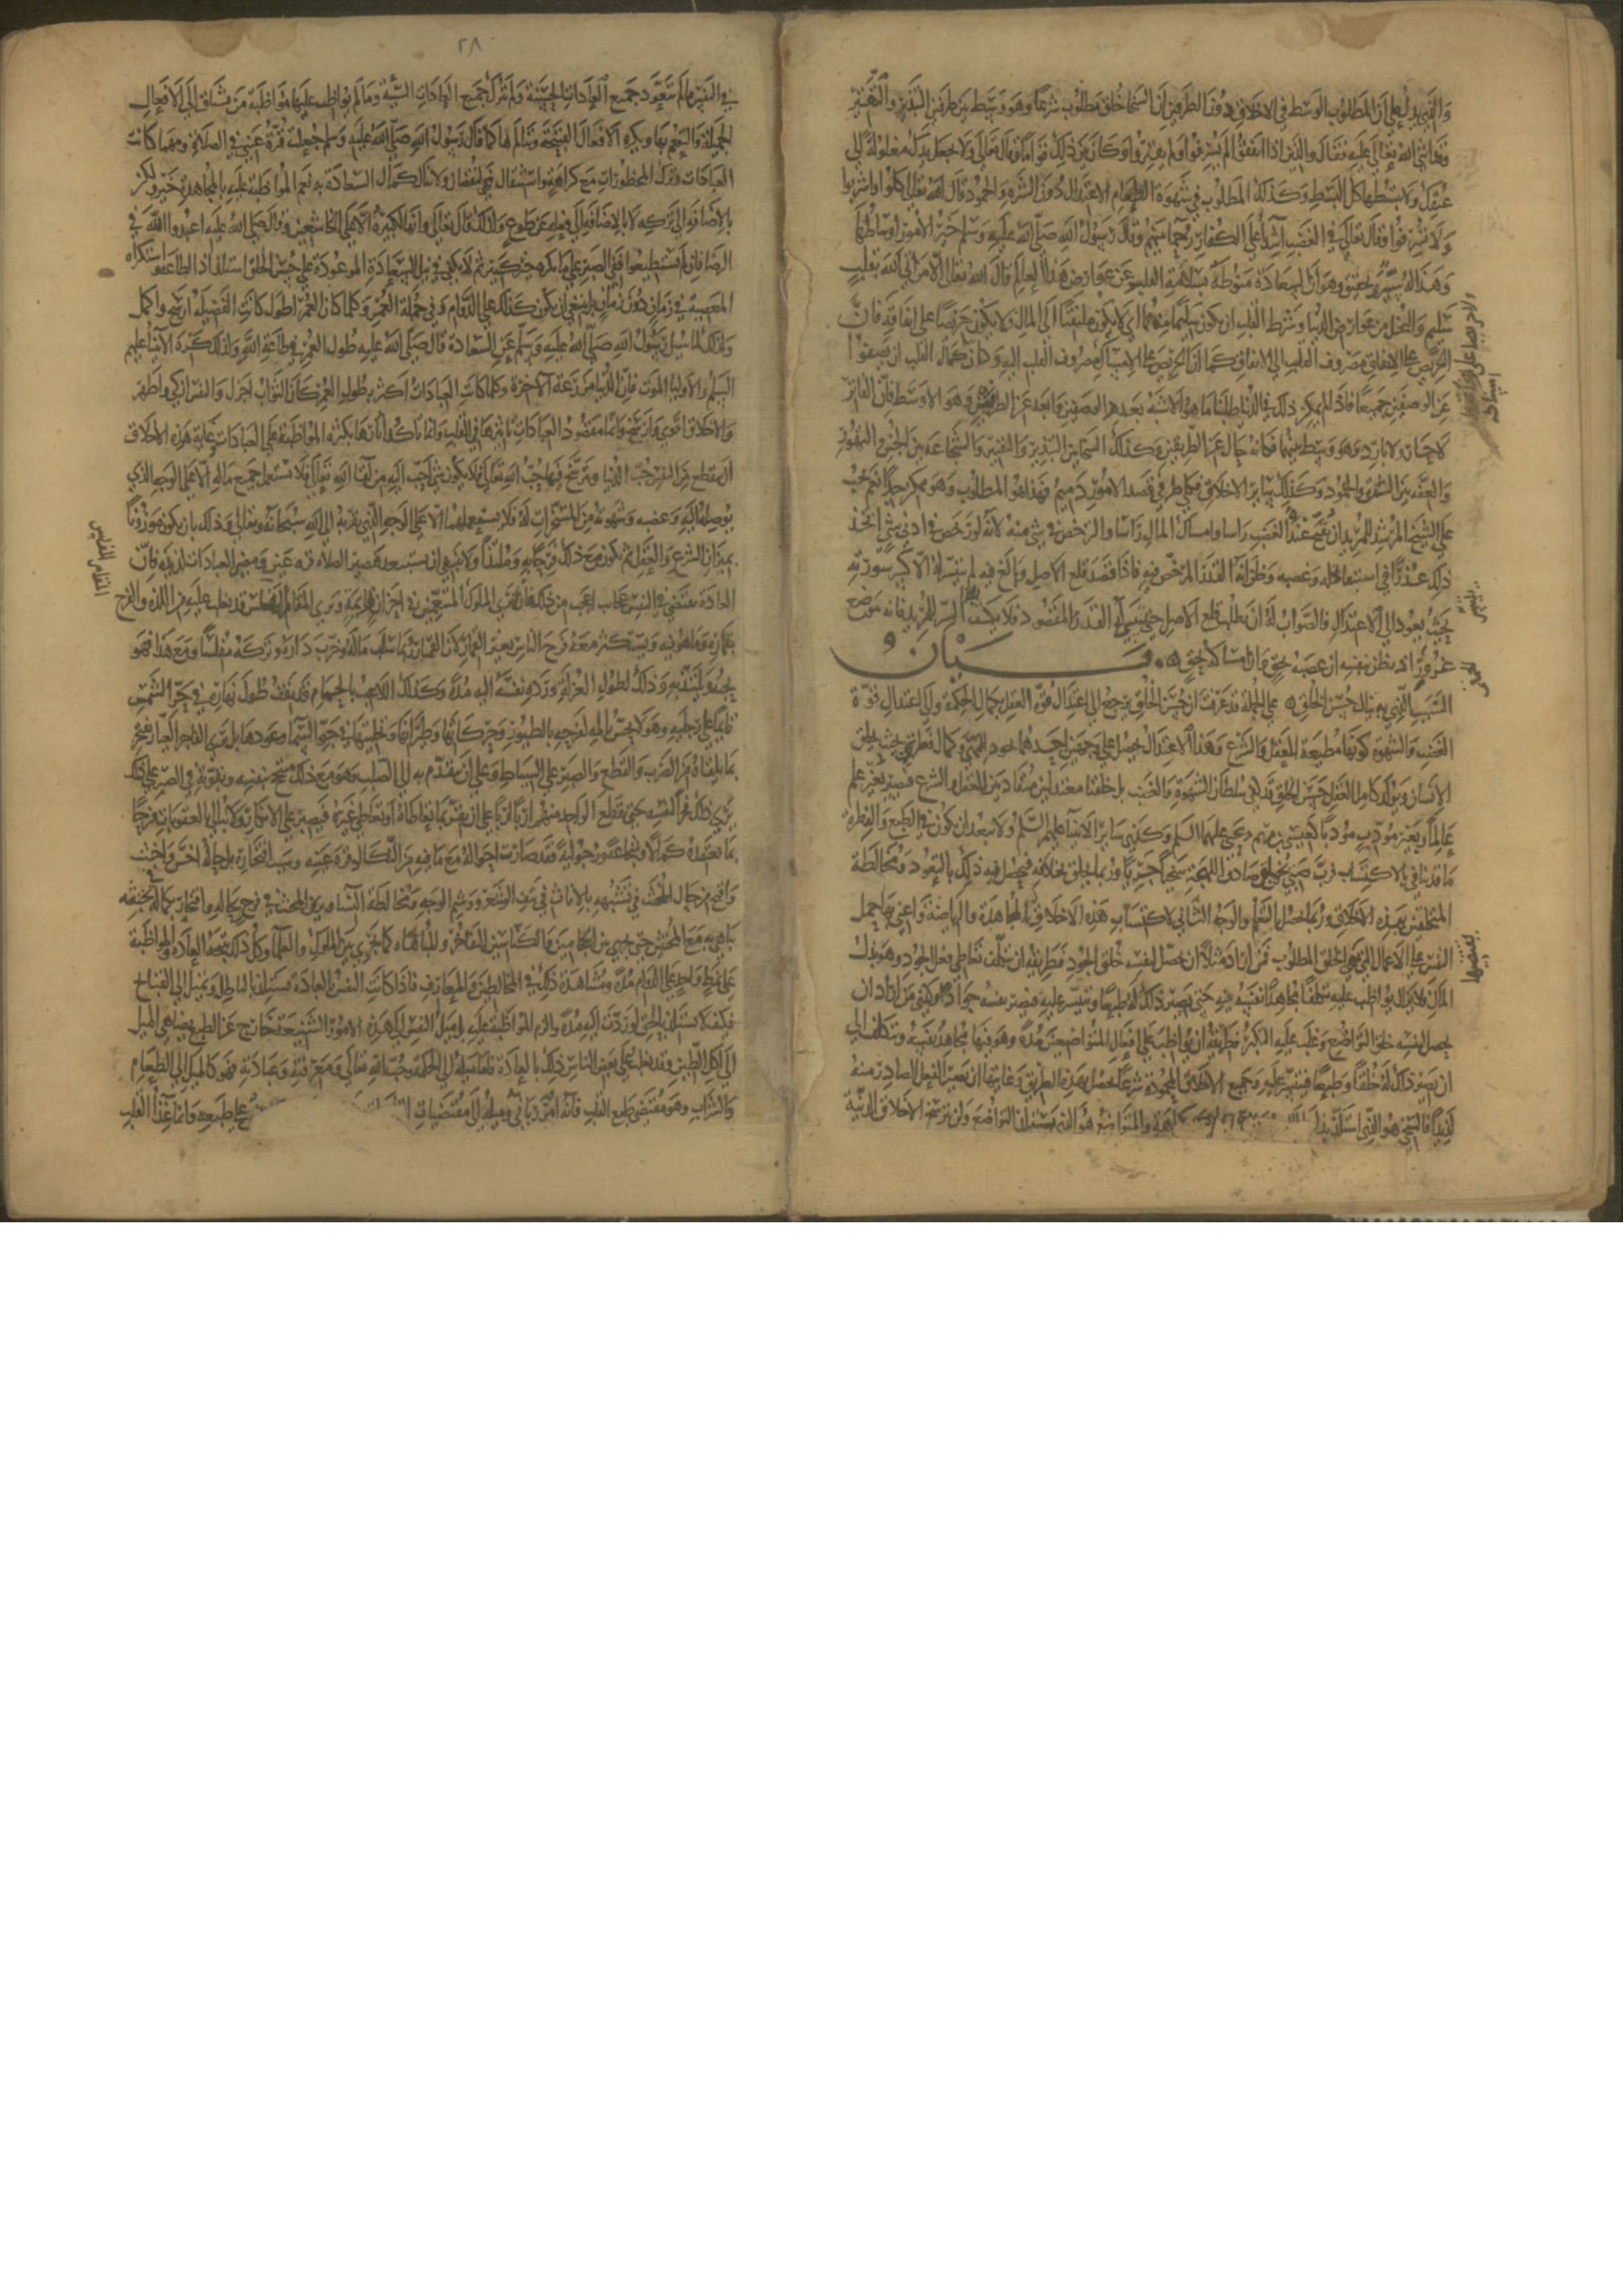 والذي يدل على ان المطلوب الوسط في الاخلاق دون الطرفين ان السخا خلق مطلوب شرعا وهو وسط بين طرفين التبذير والتقتير
وقد اثنى الله تعالى عليه فقال والذين اذا انفقوا لم يسرفوا ولم يقتروا وكان بين ذلك قواما وقال تعالى ولا تجعل يدك مغلولة الى
عنقك ولا تبسطها كل البسط وكذلك المطلوب في شهوة الطعام الاعتدال دون الشره والجمود قال الله تعالى كلوا واشربوا
ولا تسرفوا وقال تعالى في الغضب اشدآ على الكفار رحمآ بينهم وقال رسول الله صلى الله عليه وسلم خير الامور اوساطها
وهذا له سر وتحقيق وهو ان السعادة منوطة بسلامة القلب عن عوارض هذا العالم قال الله تعالى الا من اتى الله بقلب
سليم والبخل من عوارض الدنيا وشرط القلب ان يكون سليما منهما اي لا يكون ملتفتا الى المال ولا يكون حريصا على انفاقه فان
الحريص على الانفاق مصروف القلب الى الانفاق كما ان الحريص على الامساك مصروف القلب اليه وكان كمال القلب ان يصفوا
عن الوصفين جميعا فاذا لم يكن ذلك في الدنيا طلبنا ما هو الاشبه بعدم الوصفين وابعد عن الطرفين وهو الاوسط فان الفاتر
لا حار ولا بارد وهو وسط بينهما فكانه خال عن الطريقين وكذلك السخا بين التبذير والتقتير والشجاعة بين الجبن والتهور
والعفه بين الشره والجمود وكذلك سائر الاخلاق فكلي طرفي قصد الامور ذميم فهذا هو المطلوب وهو ممكن جدا نعم يجب
على الشيخ المرشد للمريد ان يقبح عنده الغضب راسا وامساك المال راسا ولا يرخص في شي منه لانه لو رخص في ادنى شي اتخذ
ذلك عذرا في استبقا بخله وغضبه وظن انه القدر المرخص فيه فاذا قصد قلع الاصل وبالغ فيه لم يتيسر له الا كسر سورته
بحيث يعود الى الاعتدال فالصواب له ان يطلب قطع الاصل حتى يتيسر له القدر المقصود فلا يكشف هذا السر للمريد فانه موضع
غرور اذ يظن بنفسه ان غضبه بحق وان امساكه بحق
بيان
السبب الذي به ينال حسن الخلق على الجملة قد عرفت ان حسن الخلق يرجع الى اعتدال قوة العقل بكمال الحكمة والى اعتدال قوة
الغضب والشهوة وكونها مطيعة للعقل والشرع وهذا الاعتدال يحصل على وجهين احدهما جود الهي وكمال فطري بحيث يخلق
الانسان ويولد كامل العقل حسن الخلق قد كفي سلطان الشهوة والغضب بل خلقتا معتدلتين منقادتين للعقل والشرع فيصير بغير علم
عالما وبغير مؤدب مؤدبا كعيسى بن مريم ويحيى عليهما السلم وكذى سائر الانبيآ عليهم السلم ولا يبعد ان يكون في الطبع والفطرة
ما قد ينال بالاكتساب فرب صبي خلق صادق اللهجة سخيا جريا وربما يخلق بخلافه فيحصل فيه ذلك بالتعود ومخالطة
المتخلقين بهذه الاخلاق وربما يحصل بالتعلم والوجه الثاني لاكتساب هذه الاخلاق المجاهدة والرياضة واعني بها حمل
النفس على الاعمال التي يقتضيها الخلق المطلوب فمن اراد مثلا ان يحصل لنفسه خلق الجود فطريقه ان يتكلف تعاطي فعل الجود وهو بذل
المال فلا يزال يواظب عليه متكلفا مجاهدا نفسه فيه حتى يصير ذلك له طبعا وتيسر عليه فيصير نفسه جوادا وكذى من اراد ان
يحصل لنفسه خلق التواضع وغلب عليه التكبر فطريقه ان يواظب على افعال المتواضعين مدة وهو فيها مجاهد نفسه ومتكلف الى
ان يصير ذلك له خلقا وطبعا فيتيسر عليه وجميع الاخلاق المحمودة شرعا تحصل بهذه الطريق وغايتها ان يصير الفعل الصادر منه
لذيذا فالسخي هو الذي يستلذ بذل والمتواضع هو الذي يستلذ التواضع ولن ترسخ الاخلاق الدينية
يقتضيها
٢٨
في النفس ما لم تتعود جميع العادات الحسنة ولم تترك جميع العادات السيئة وما لم يواظب عليها مواظبة من يشتاق الى الافعال
الجميلة والتنعم بها ويكره الافعال القبيحة ويتالم بها كما قال رسول الله صلى الله عليه وسلم جعلت قرة عيني في الصلاة ومهما كانت
العبادات وترك المحظورات مع كراهة واستثقال فهو لنقصان ولا ينال كمال السعادة به نعم المواظبة عليه بالمجاهدة خير ولكن
بالاضافة الى تركه لا بالاضافة الى فعله عن طوع ولذلك قال تعالى وانها لكبيرة الا على الخاشعين وقال صلى الله عليه اعبدوا الله في
الرضا فان لم تستطيعوا ففي الصبر على ما تكره خير كثير ثم لا يكفي في نيل السعادة الموعودة على حسن الخلق استلذاذ الطاعة واستكراه
المعصية في زمان دون زمان بل ينبغي ان يكون كذلك على الدوام وفي جملة العمر وكلما كان العمر اطول كانت الفضيلة ارسخ واكمل
ولذلك لما سئل رسول الله صلى الله عليه وسلم عن السعادة قال صلى الله عليه طول العمر في طاعة الله ولذلك كره الانبيآ عليهم
السلم والاوليا الموت فان الدنيا مزرعة الاخرة وكلما كانت العبادات اكثر بطول العمر كان الثواب اجزل والنفس ازكى واطهر
والاخلاق اقوى وارسخ وانما مقصود العبادات تاثيرها في القلب وانما يتاكد تاثيرها بكثرة المواظبة على العبادات وغاية هذه الاخلاق
ان ينقطع عن النفس حب الدنيا ويرسخ فيها حب الله تعالى فلا يكون شي احب اليه من لقا الله تعالى فلا يستعمل جميع ماله الا على الوجه الذي
يوصله اليه وغضبه وشهوته من المسخرات له فلا يستعملها الا على الوجه الذي يقربه الى الله سبحانه وتعالى وذلك بان يكون موزونا
بميزان الشرع والعقل ثم يكون مع ذلك فرحا به وملتذا ولا ينبغي ان يستبعد مصير الصلاة قرة عين ومصير العبادات لذيذة فان
العادة تقتضي في النفس عجائب اعجب من ذلك فانا نرى الملوك المنعمين في احزان دائمة ونرى المقامر المفلس قد يغلب عليه من اللذة والفرح
بقماره وما هو فيه ويستكثر معه فرح الناس بغير القمار مع ان القمار ربما سلب ماله وخرب داره وتركه مفلسا ومع هذا فهو
يحبه ويلتذ به وذلك لطول الفه له ورده نفسه اليه مدة وكذلك اللاعب بالحمام قد يقف طول نهاره في حر الشمس
قائما على رجليه وهو لا يحس بالمه لفرحه بالطيور وحركاتها وطيرانها وتحليقها في جو السما وعودها بل نرى الفاجر العيار يفتخر
بما يلقاه من الضرب والقطع والصبر على السياط وعلى ان يتقدم به الى الصلب وهو مع ذلك متبجح بنفسه وبقوته في الصبر على ذلك
يرى ذلك فخرا لنفسه حتى يقطع الواحد منهم اربا اربا على ان يقر بما تعاطاه او تعاطى غيره فيصر على الانكار ولا يبالي بالعقوبات فرحا
بما يعتقده كمالا وشجاعة ورجولية فقد صارت احواله مع ما فيه من النكال قرة عينه وسبب افتخاره بل لا حالة اخس واخبث
واقبح من حال المخنث في تشبهه بالاناث في نتف الشعر ووشم الوجه ومخالطة النسا فترى المخنث في فرح بحاله وافتخار بكماله في تخنثه
يتباهى به مع المخنثين حتى يجري بين الحجامين والكناسين التفاخر والمباهاة كما يجري بين الملوك والعلمآ وكل ذلك نتيجة العادة والمواظبة
على نمط واحد على الدوام مدة ومشاهدة ذلك في المخالطين والمعارف فاذا كانت النفس بالعادة تستلذ الباطل وتميل الى القبائح
فكيف لا تستلذ الحق لو ردت اليه مدة والزم المواظبة عليه بل ميل النفس الى هذه الامور الشنيعة خارج عن الطبع يضاهي الميل
الى اكل الطين وقد يغلب على بعض الناس ذلك بالعادة فاما ميله الى الحكمة وحب الله تعالى ومعرفته وعبادته فهو كالميل الى الطعام
والشراب وهو مقتضى طبع القلب فانه امر رباني وميله الى مقتضيات على طبعه وانما غذآ القلب